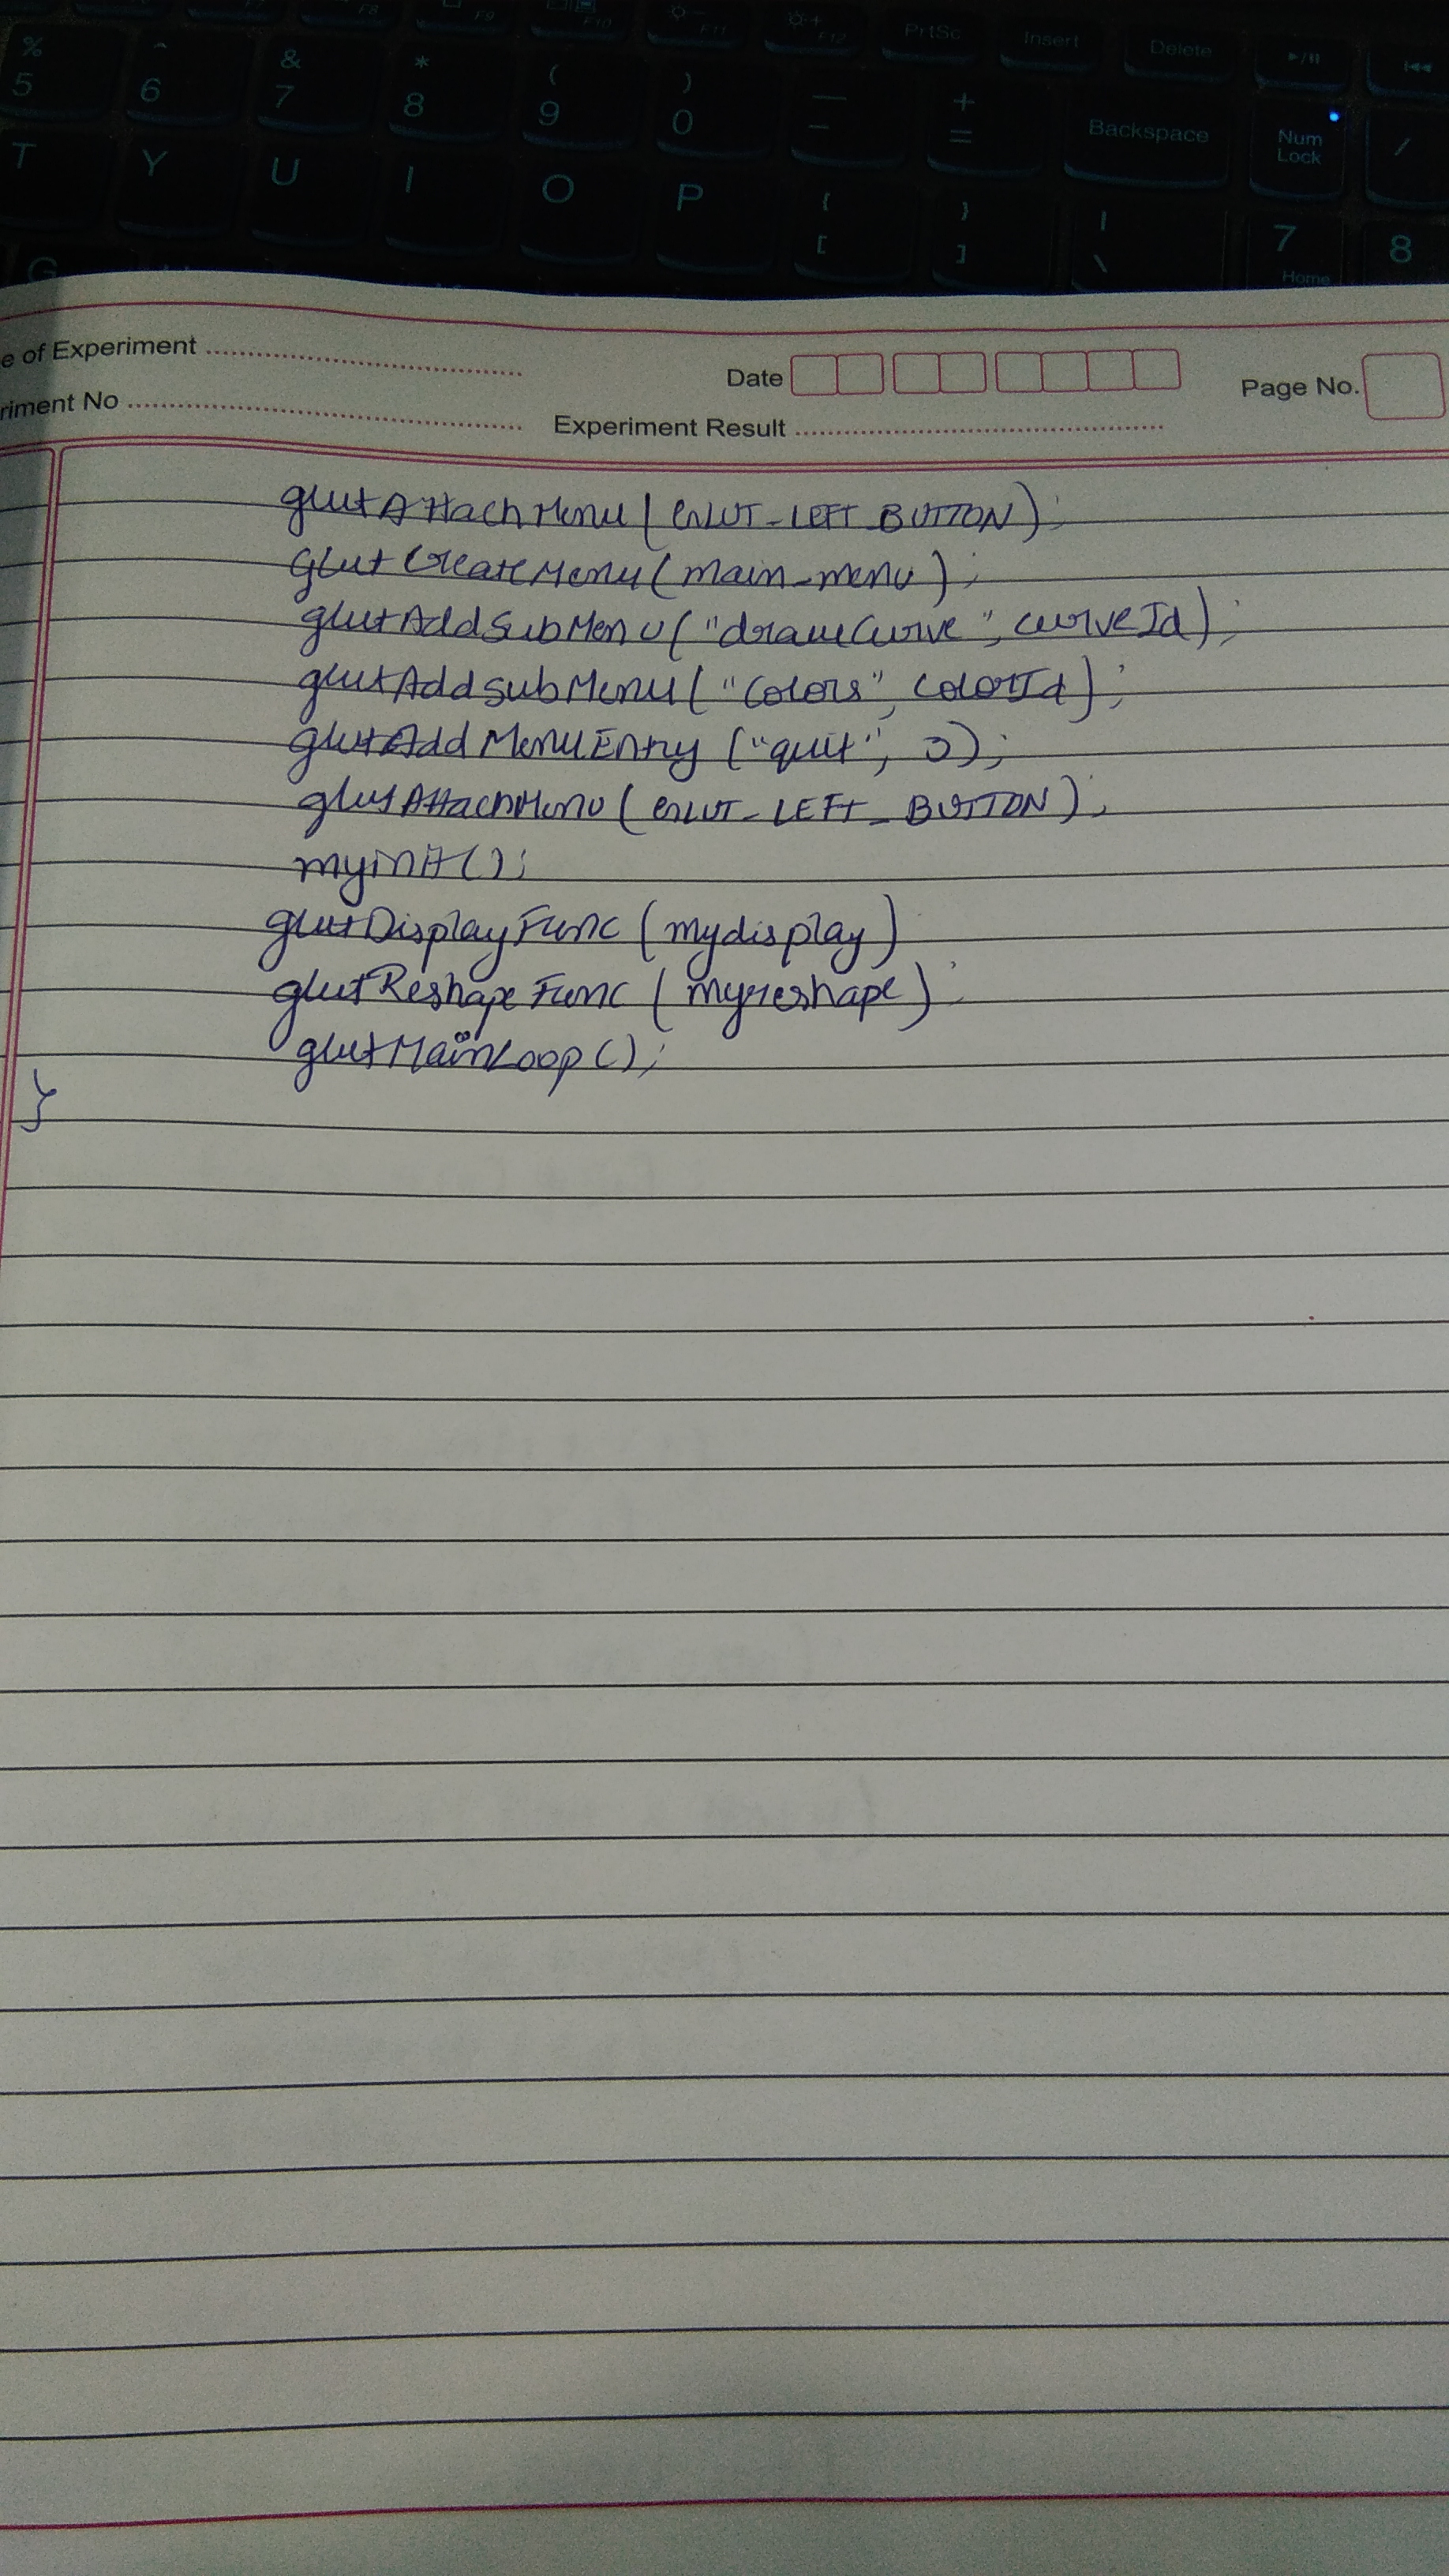 F8 F9 F10 F11 F12 PrtSc Insert Delete
% 5 ^ 6 & 7 * 8 ( 9 ) 0 — - + = Backspace Num Lock /
T Y U I O P { [ } ] | \ 7 Home 8
G
e of Experiment
Date
Page No.
riment No
Experiment Result
glutAttachMenu(GLUT_LEFT_BUTTON);
GlutCreateMenu(main_menu);
glutAddSubMenu("drawCurve", curveId);
glutAddSubMenu("Colors", colorId);
glutAddMenuEntry("quit", 0);
glutAttachMenu(GLUT_LEFT_BUTTON);
myinit();
glutDisplayFunc(mydisplay)
glutReshapeFunc(myreshape);
glutMainLoop();
}